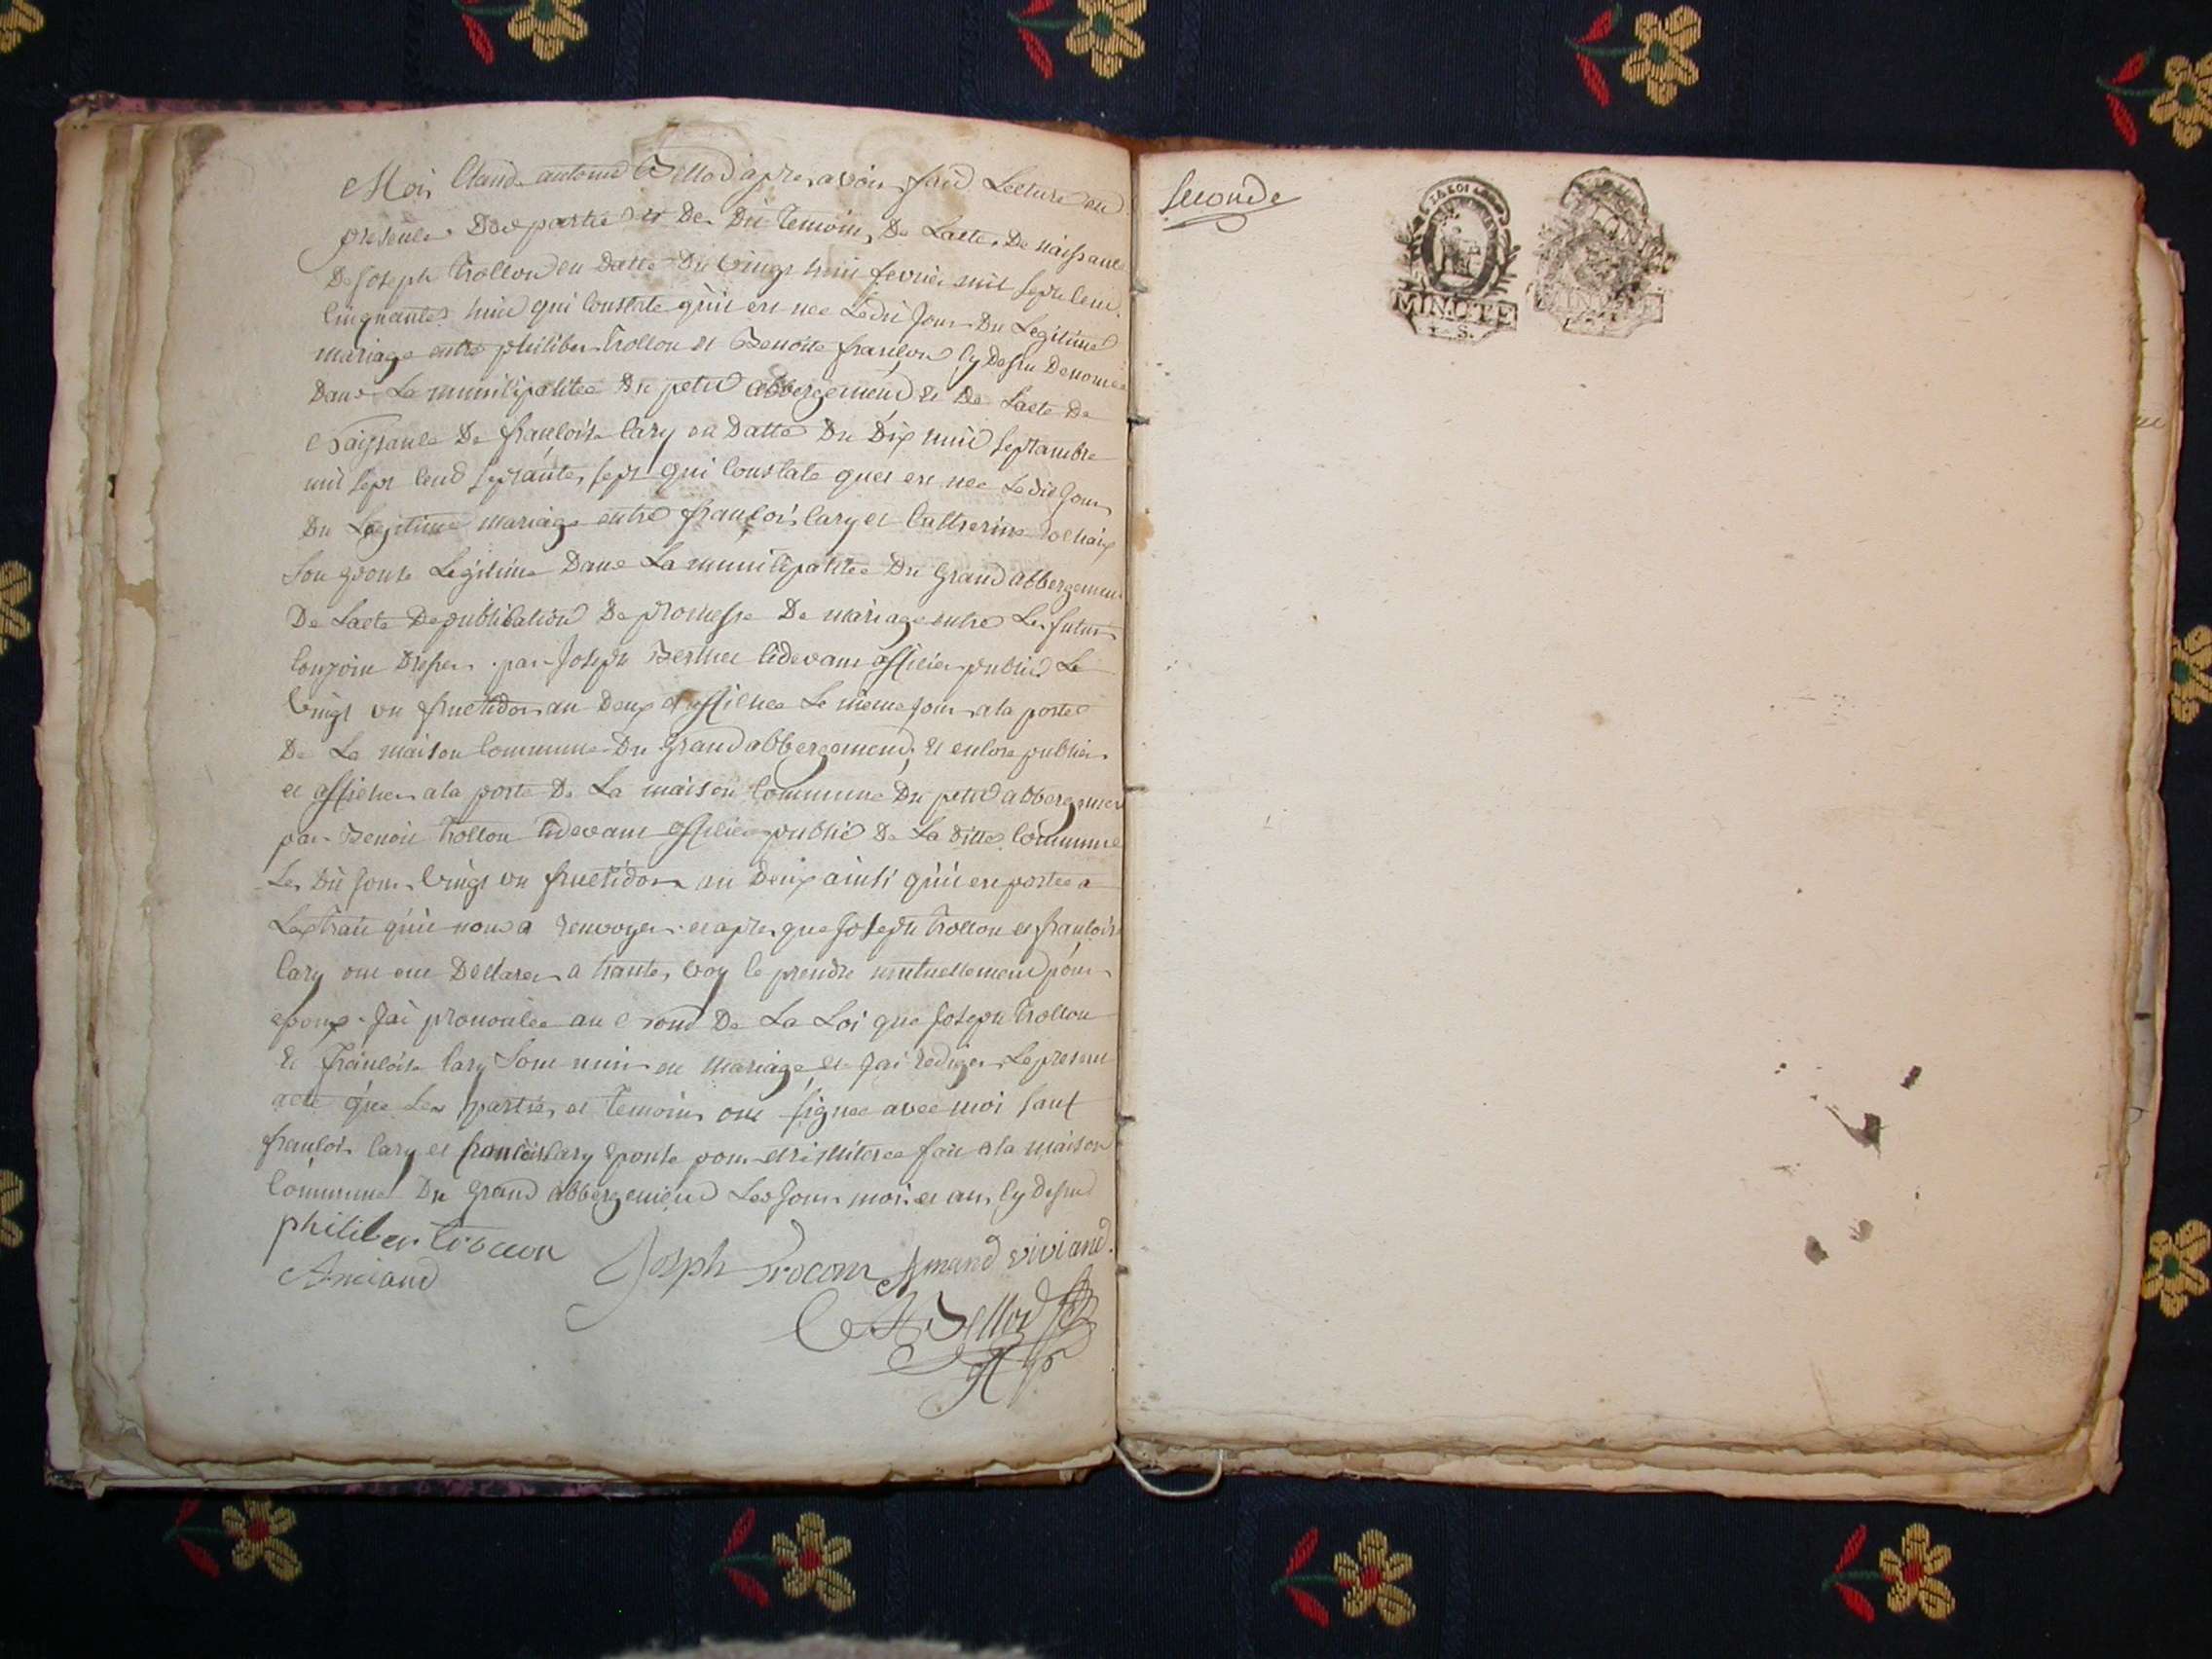 Moi Claude antoine Bellod apres avoir fait Lecture en
presence Des partie et Des Dit temoins De Lacte De naissance
De Joseph trollon en Datte Du vingt huit fevrier mil sept cent
cinquante huit qui Constate quil est nee Ledit Jour Du Legitime
mariage entre philiber trollon et Benoite françon cy Desu Denomee
Dans La municipalitee Du petit abbergement et De Lacte De
Naissance De francoise Cary en Datte Du Dix huit septambre
mil sept cent septante sept qui Constate quel est nee Ledit Jour
Du Legitime mariage entre françois Cary et Catherine
son epouse Legitime Dans La municipalitee Du Grand abbergement
De Lacte De publication De promesse De mariage entre Les futurs
Conjoin Dresser par Joseph Berthet cidevant officier public Le
vingt un fructidor an Deux et afficher Le meme Jour a la porte
De La maison Commune Du Grand abbergement, et encore publier
et afficher a la porte De La maison Commune Du petit abbergement
par Benoit trollon cidevant officier public De La ditte Commune
Les Dit Jour vingt un fructidor an Deux ainsi quil est portee a
Lextrait quil nous a renvoyer et apres que Joseph trollon et francoise
Cary ont eu Declarer a haute voy ce prendre mutuellement pour
epoux Jai prononcee au Nom De La Loi que Joseph trollon
et francoise Cary sont unis en mariage et Jai rediger Le present
acte que Les parties et temoins ont signee avec moi sauf
francois Cary et francoise Cary epouse pour etre illiteree fait a la maison
Commune Du Grand abbergement Les Jour mois et an cy Desu
philiber trocon Joseph Trocon Armand viviand
Anciand
C A Bellod
Seconde
LA LOI
MINUTE MINUTE